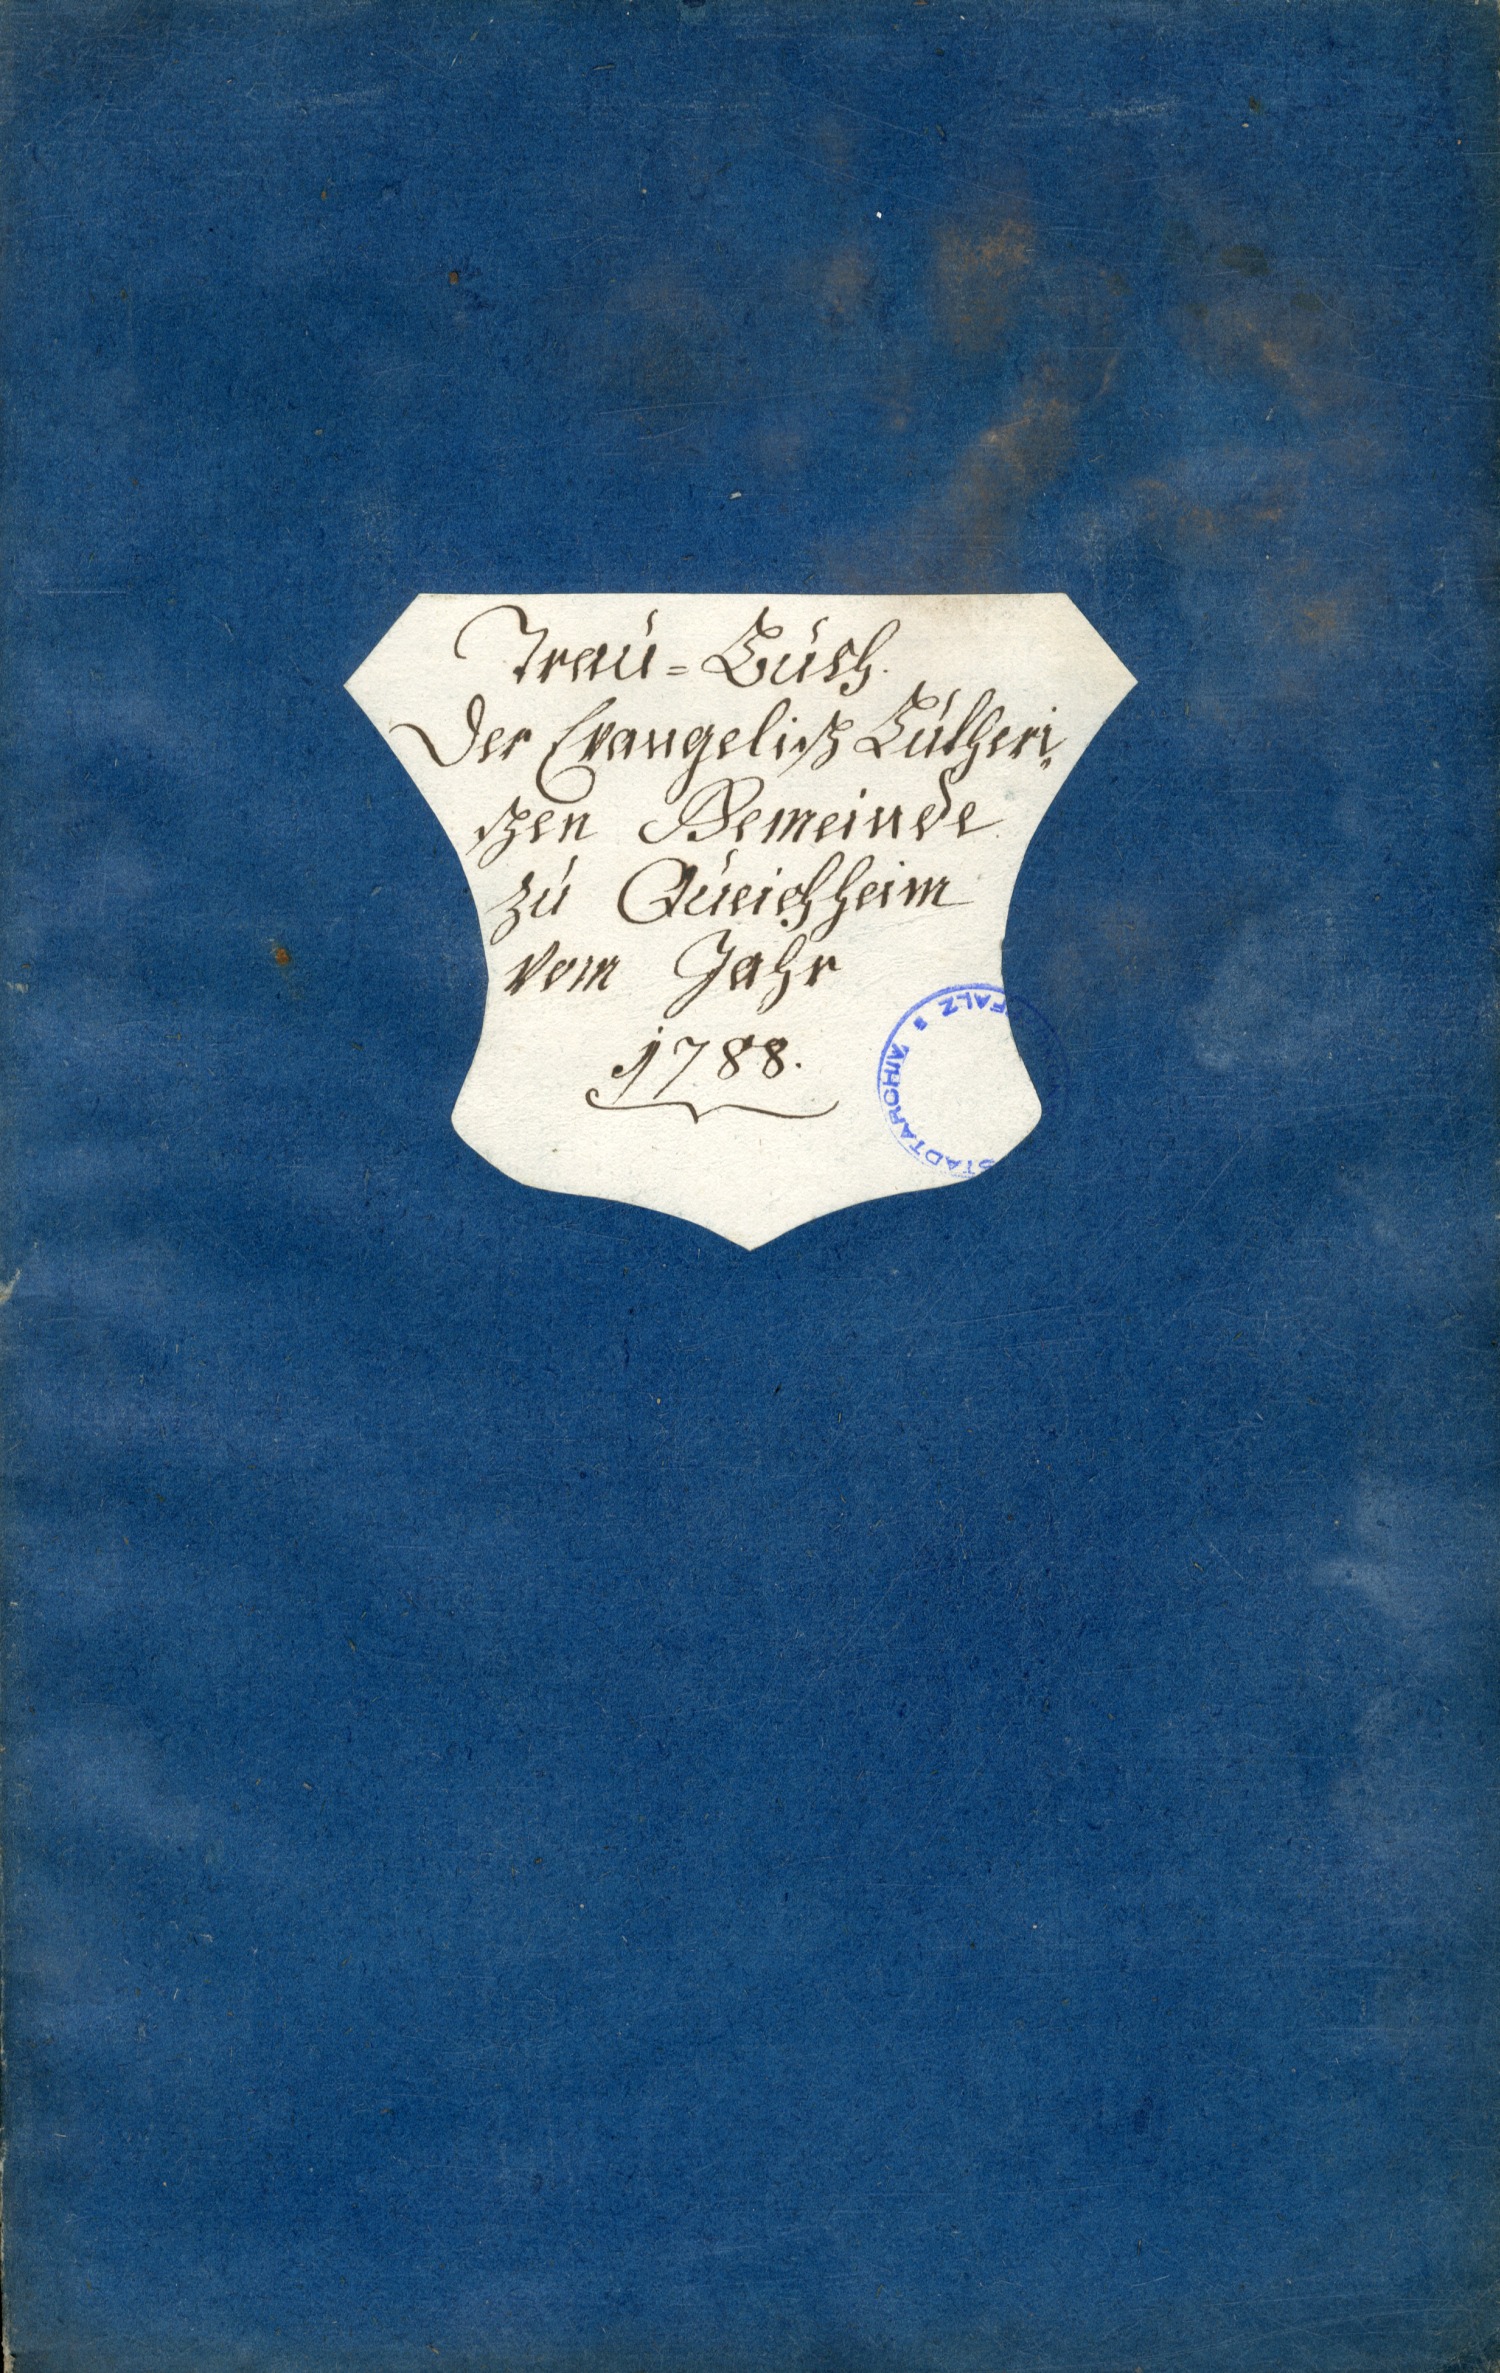 Trau=Buch.
Der Evangelisch Lutheri,
schen Gemeinde
zu Queichheim
vom Jahr
1788.
STADTARCHIV
FALZ